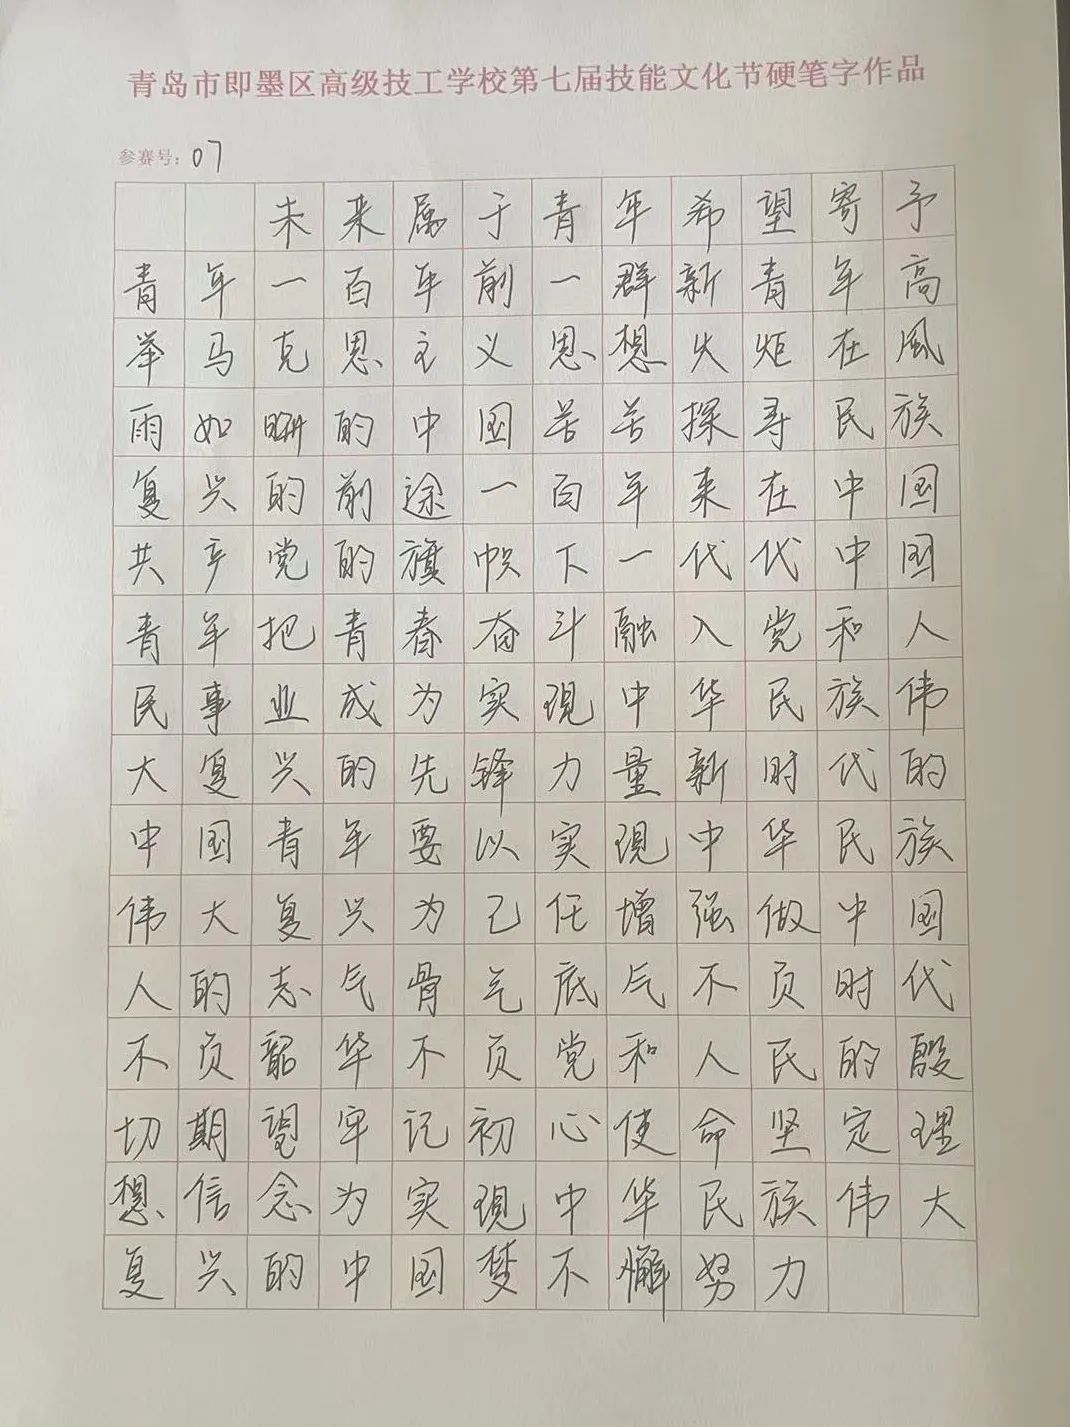 青岛市即墨区高级技工学校第七届技能文化节硬笔字作品
参赛号：07
未来属于青年希望寄予
青年一百年前一群新青年高
举马克思主义思想火炬在風
雨如晦的中国苦苦探寻民族
复兴的前途一百年来在中国
共产党的旗帜下一代代中国
青年把青春奋斗融入党和人
民事业成为实现中华民族伟
大复兴的先锋力量新时代的
中国青年要以实现中华民族
伟大复兴为己任增强做中国
人的志气骨气底气不负时代
不负韶华不负党和人民的殷
切期望牢记初心使命坚定理
想信念为实现中华民族伟大
复兴的中国梦不懈努力